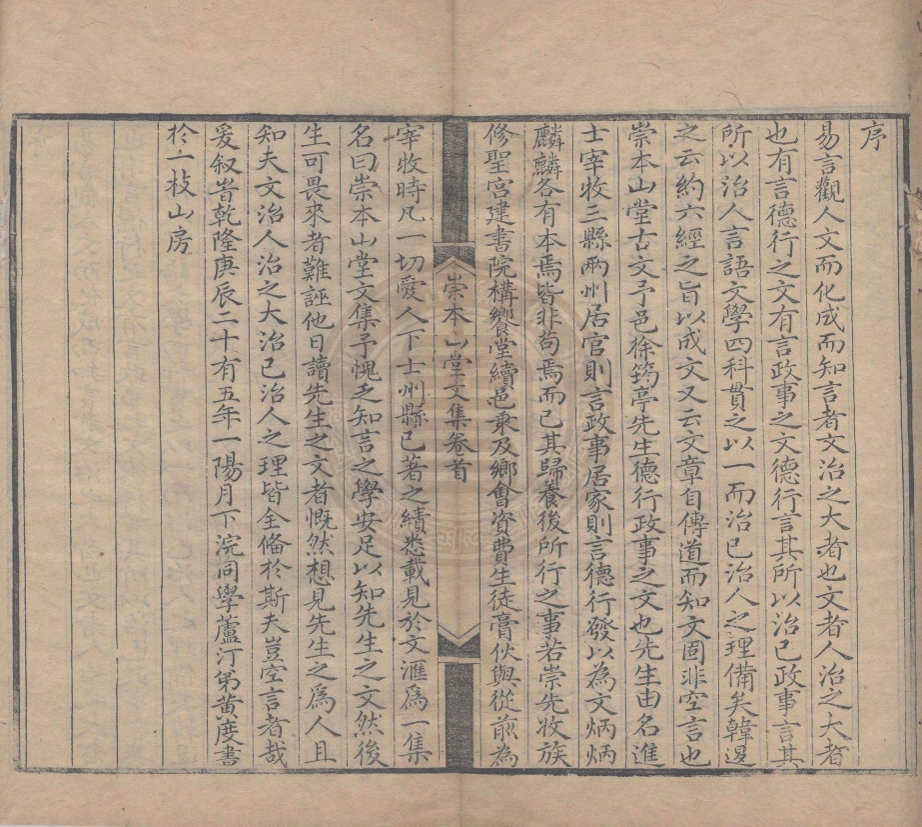 序
易言觀人文而化成而知言者文治之大者也文者人治之大者
也有言德行之文有言政事之文德行言其所以治已政事言其
所以治人言語文學四科貫之以一而治已治人之理備矣韓退
之云約六經之旨以成文又云文章自傳道而知文固非空言也
崇本山堂古文予邑徐筠亭先生德行政事之文也先生由名進
士宰牧三縣兩州居官則言政事居家則言德行發以為文炳炳
麟麟各有本焉皆非苟焉而已其歸養後所行之事若崇先收族
修聖宮建書院構饗堂續邑乘及鄉會資費生徒膏伙與從前為
崇本山堂文集卷首
宰牧時凡一切愛人下士州縣已著之績悉載見於文滙爲一集
名曰崇本山堂文集予愧乏知言之學安足以知先生之文然後
生可畏來者難誣他日讀先生之文者慨然想見先生之爲人且
知夫文治人治之大治已治人之理皆全備於斯夫豈空言者哉
爰叙旹乾隆庚辰二十有五年一陽月下浣同學蘆汀弟黄度書
於一枝山房